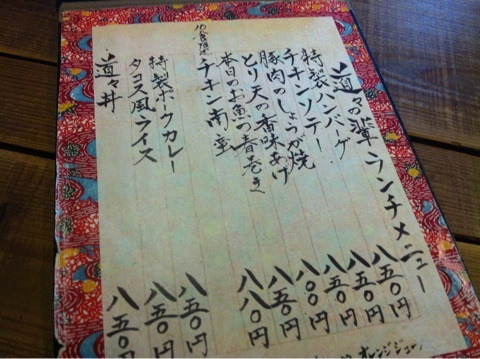 道々の輩 ランチメニュー
特製ハンバーグ 八五〇円
チキンソテー 八五〇円
豚肉のしょうが焼 八五〇円
とり天の香味あげ 八〇〇円
本日のお魚の春巻き 八五〇円
チキン南蛮 八八〇円
特製ホウカレー 八五〇円
タコス風ライス 八五〇円
道々丼 八五〇円
オレンジジュー